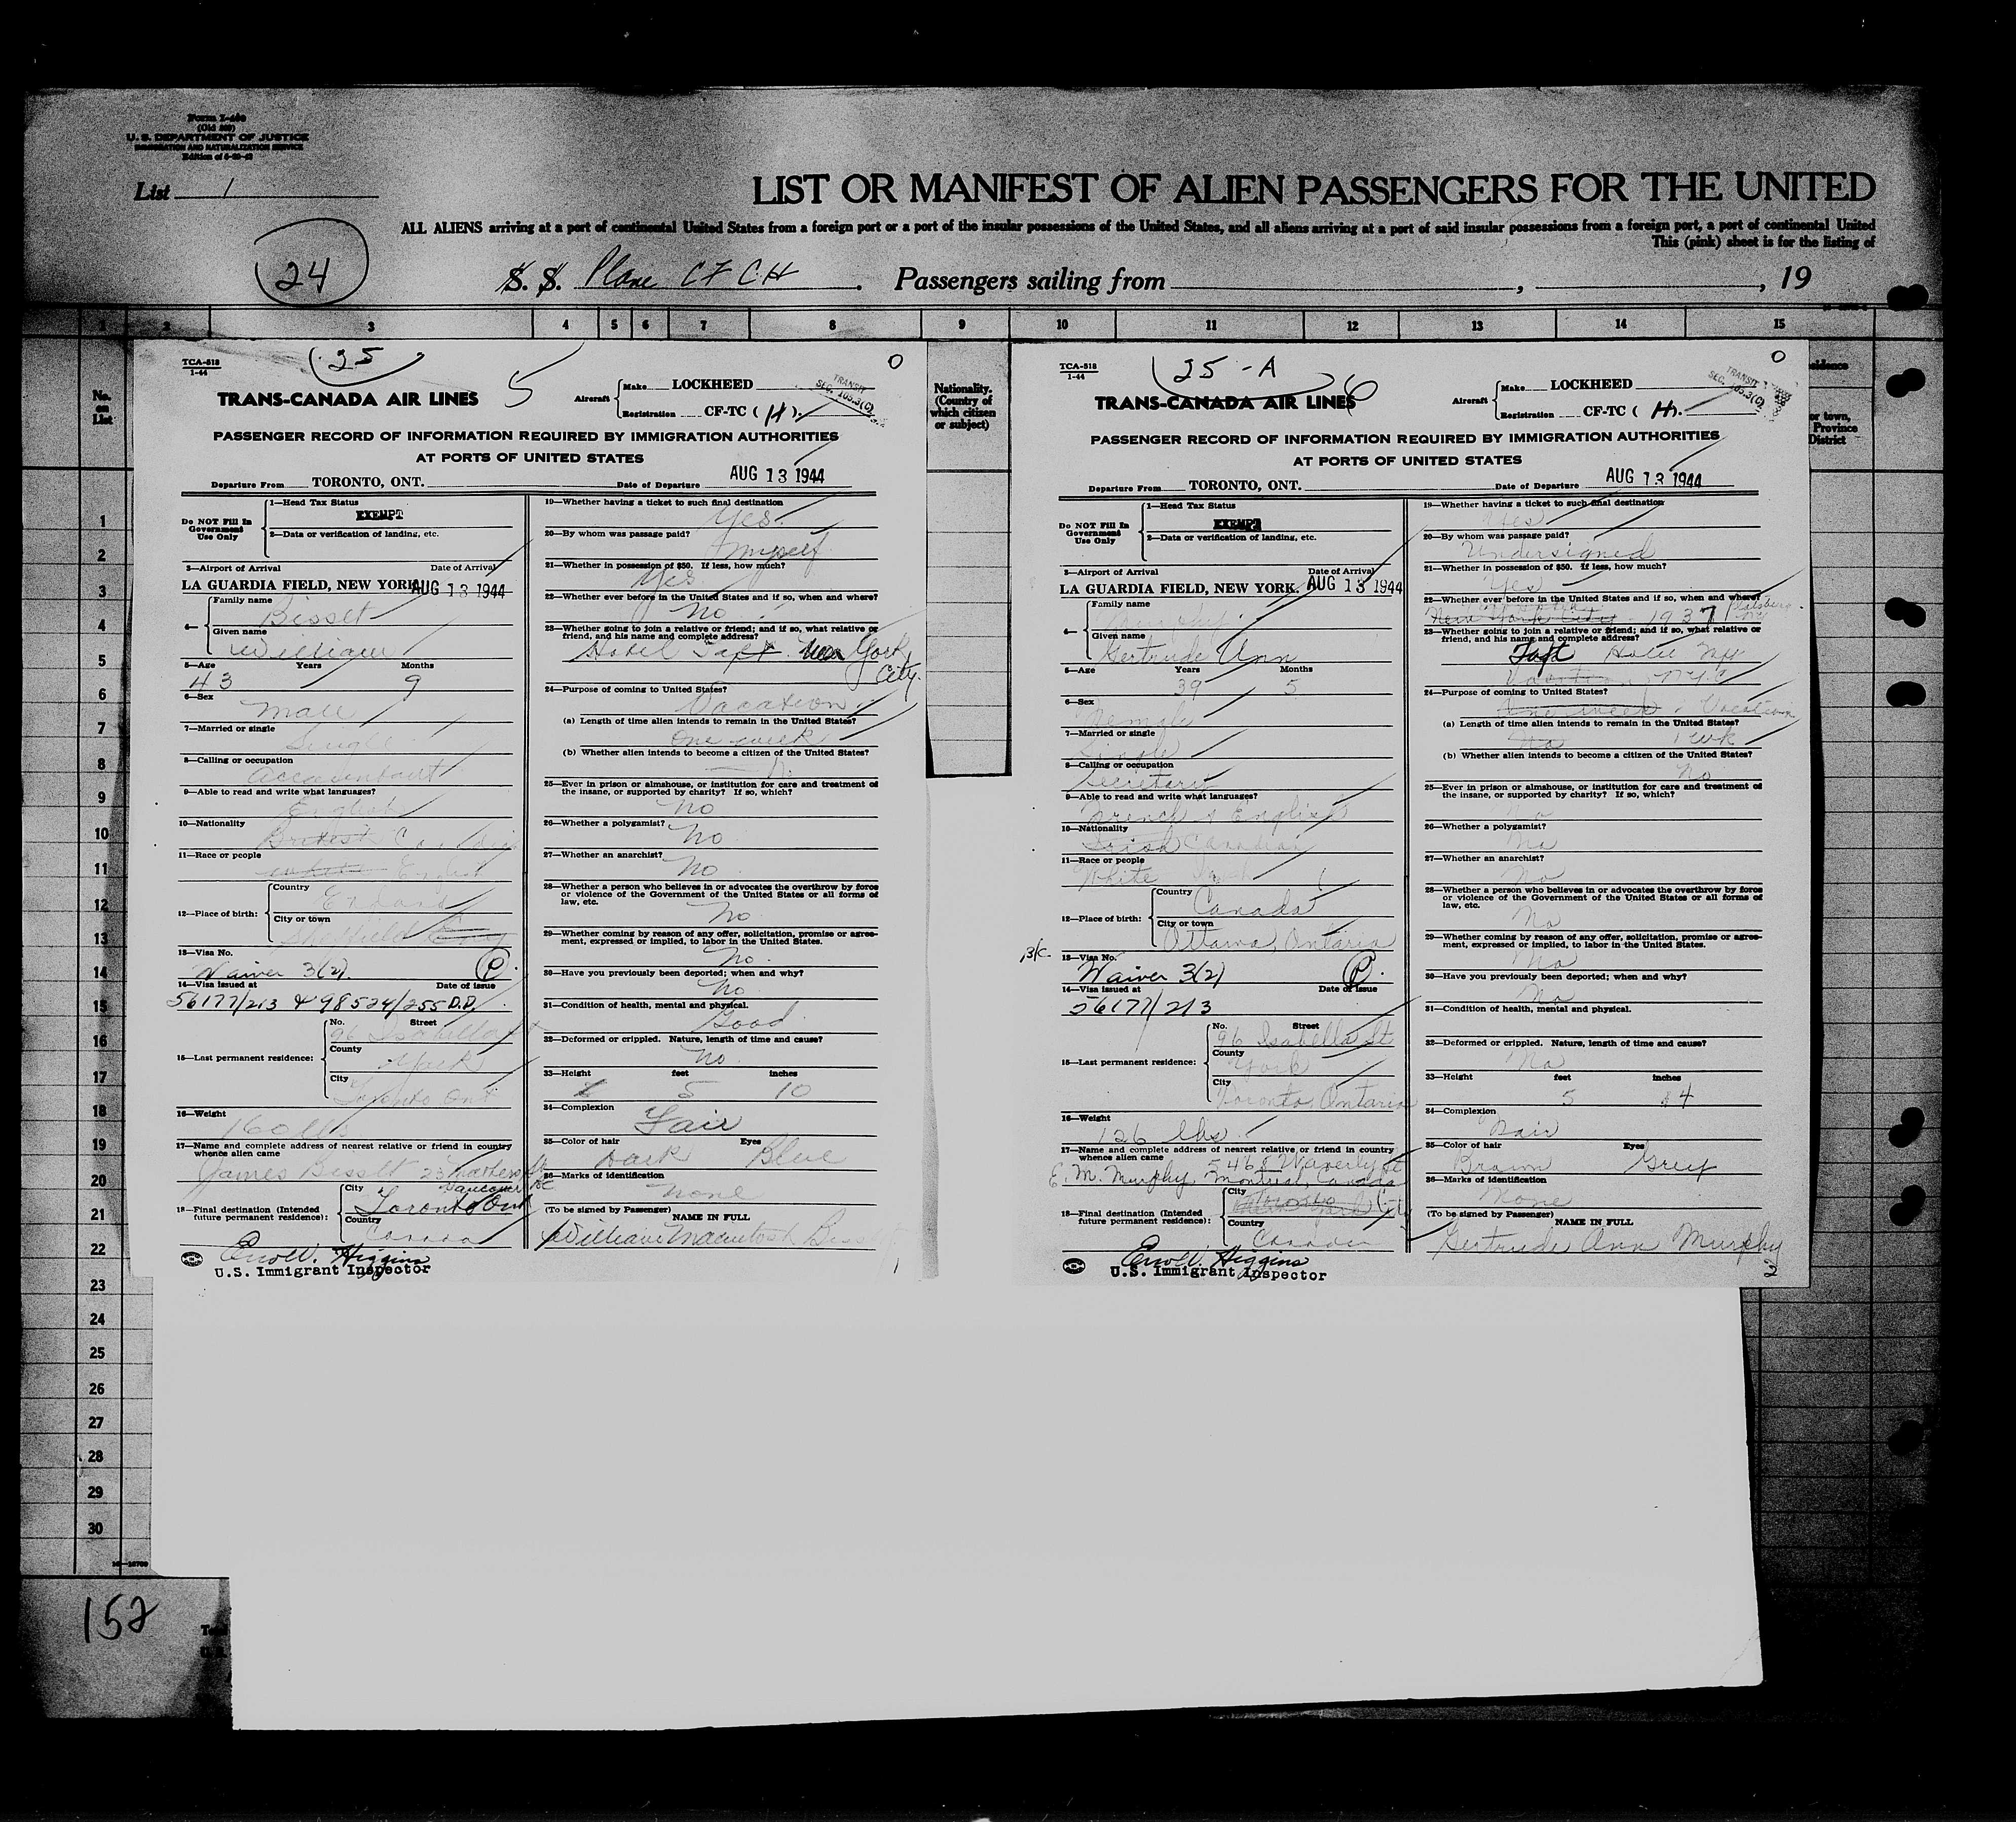 Form I-466
(Old 500)
U. S. DEPARTMENT OF JUSTICE
IMMIGRATION AND NATURALIZATION SERVICE
List 1
24
LIST OR MANIFEST OF ALIEN PASSENGERS FOR THE UNITED
ALL ALIENS arriving at a port of continental United States from a foreign port or a port of the insular possessions of the United States, and all aliens arriving at a port of said insular possessions from a foreign port, a port of continental United
This (pink) sheet is for the listing of
S. S. Plane CF CH. Passengers sailing from , , 19
1 2 3 4 5 6 7 8 9 10 11 12 13 14 15
No. on List
Nationality. (Country of which citizen or subject)
or town, Province District
TCA-518
1-44
25
5
0
TRANS-CANADA AIR LINES
Aircraft
Make LOCKHEED
Registration CF-TC (H).
TRANSIT
SEC. 103.3(C)
PASSENGER RECORD OF INFORMATION REQUIRED BY IMMIGRATION AUTHORITIES
AT PORTS OF UNITED STATES
Departure From TORONTO, ONT. Date of Departure AUG 13 1944
Do NOT Fill In Government Use Only
1—Head Tax Status
EXEMPT
2—Data or verification of landing, etc.
3—Airport of Arrival Date of Arrival
LA GUARDIA FIELD, NEW YORK. AUG 13 1944
4—
Family name
Bisset
Given name
William
5—Age Years Months
43 9
6—Sex
Male
7—Married or single
Single
8—Calling or occupation
Accountant
9—Able to read and write what languages?
English
10—Nationality
11—Race or people
English
12—Place of birth:
Country
England
City or town
Sheffield
13—Visa No.
Waiver 3(2). P.
14—Visa issued at Date of issue
56177/213 & 98524/255 D.D.
15—Last permanent residence:
No. Street
96 Isabella St
County
York
City
Toronto Ont
16—Weight
160 lbs
17—Name and complete address of nearest relative or friend in country whence alien came
James Bisset
Vancouver BC
18—Final destination (Intended future permanent residence):
City
Toronto Ont
Country
Canada
Errol V. Higgins
U.S. Immigrant Inspector
19—Whether having a ticket to such final destination
Yes.
20—By whom was passage paid?
Myself.
21—Whether in possession of $50. If less, how much?
Yes
22—Whether ever before in the United States and if so, when and where?
No
23—Whether going to join a relative or friend; and if so, what relative or friend, and his name and complete address?
Hotel Taft New York City.
24—Purpose of coming to United States?
Vacation.
(a) Length of time alien intends to remain in the United States?
One week
(b) Whether alien intends to become a citizen of the United States?
No
25—Ever in prison or almshouse, or institution for care and treatment of the insane, or supported by charity? If so, which?
No
26—Whether a polygamist?
No
27—Whether an anarchist?
No
28—Whether a person who believes in or advocates the overthrow by force or violence of the Government of the United States or all forms of law, etc.
No
29—Whether coming by reason of any offer, solicitation, promise or agreement, expressed or implied, to labor in the United States.
No.
30—Have you previously been deported; when and why?
No
31—Condition of health, mental and physical.
Good
32—Deformed or crippled. Nature, length of time and cause?
No.
33—Height feet inches
5 10
34—Complexion
Fair
35—Color of hair Eyes
Dark Blue
36—Marks of identification
None
(To be signed by Passenger) NAME IN FULL
William Macintosh Bisset
TCA-518
1-44
25-A
6
0
TRANS-CANADA AIR LINES
Aircraft
Make LOCKHEED
Registration CF-TC (H).
TRANSIT
SEC. 103.3(C)
PASSENGER RECORD OF INFORMATION REQUIRED BY IMMIGRATION AUTHORITIES
AT PORTS OF UNITED STATES
Departure From TORONTO, ONT. Date of Departure AUG 13 1944
Do NOT Fill In Government Use Only
1—Head Tax Status
EXEMPT
2—Data or verification of landing, etc.
3—Airport of Arrival Date of Arrival
LA GUARDIA FIELD, NEW YORK. AUG 13 1944
4—
Family name
Given name
Gertrude Ann
5—Age Years Months
39 5
6—Sex
Female
7—Married or single
Single
8—Calling or occupation
Secretary
9—Able to read and write what languages?
French & English
10—Nationality
Irish Canadian
11—Race or people
White
12—Place of birth:
Country
Canada
City or town
Ottawa, Ontario
13—Visa No.
Waiver 3(2) P.
14—Visa issued at Date of issue
56177/213
15—Last permanent residence:
No. Street
96 Isabella St
County
York
City
Toronto, Ontario
16—Weight
126 lbs.
17—Name and complete address of nearest relative or friend in country whence alien came
E. M. Murphy, 5468 Waverly St
Montreal, Canada
18—Final destination (Intended future permanent residence):
City
Toronto
New York City
Country
Canada
Errol V. Higgins
U.S. Immigrant Inspector
19—Whether having a ticket to such final destination
Yes
20—By whom was passage paid?
Undersigned
21—Whether in possession of $50. If less, how much?
Yes
22—Whether ever before in the United States and if so, when and where?
New York City 1937
23—Whether going to join a relative or friend; and if so, what relative or friend, and his name and complete address?
Taft Hotel NY
Vacation NYC
24—Purpose of coming to United States?
One week Vacation
(a) Length of time alien intends to remain in the United States?
No 1 wk
(b) Whether alien intends to become a citizen of the United States?
No
25—Ever in prison or almshouse, or institution for care and treatment of the insane, or supported by charity? If so, which?
No
26—Whether a polygamist?
No
27—Whether an anarchist?
No
28—Whether a person who believes in or advocates the overthrow by force or violence of the Government of the United States or all forms of law, etc.
No
29—Whether coming by reason of any offer, solicitation, promise or agreement, expressed or implied, to labor in the United States.
No
30—Have you previously been deported; when and why?
No
31—Condition of health, mental and physical.
32—Deformed or crippled. Nature, length of time and cause?
No
33—Height feet inches
5 4
34—Complexion
Fair
35—Color of hair Eyes
Brown Grey
36—Marks of identification
None
(To be signed by Passenger) NAME IN FULL
Gertrude Ann Murphy
2
1
2
3
4
5
6
7
8
9
10
11
12
13
14
15
16
17
18
19
20
21
22
23
24
25
26
27
28
29
30
152